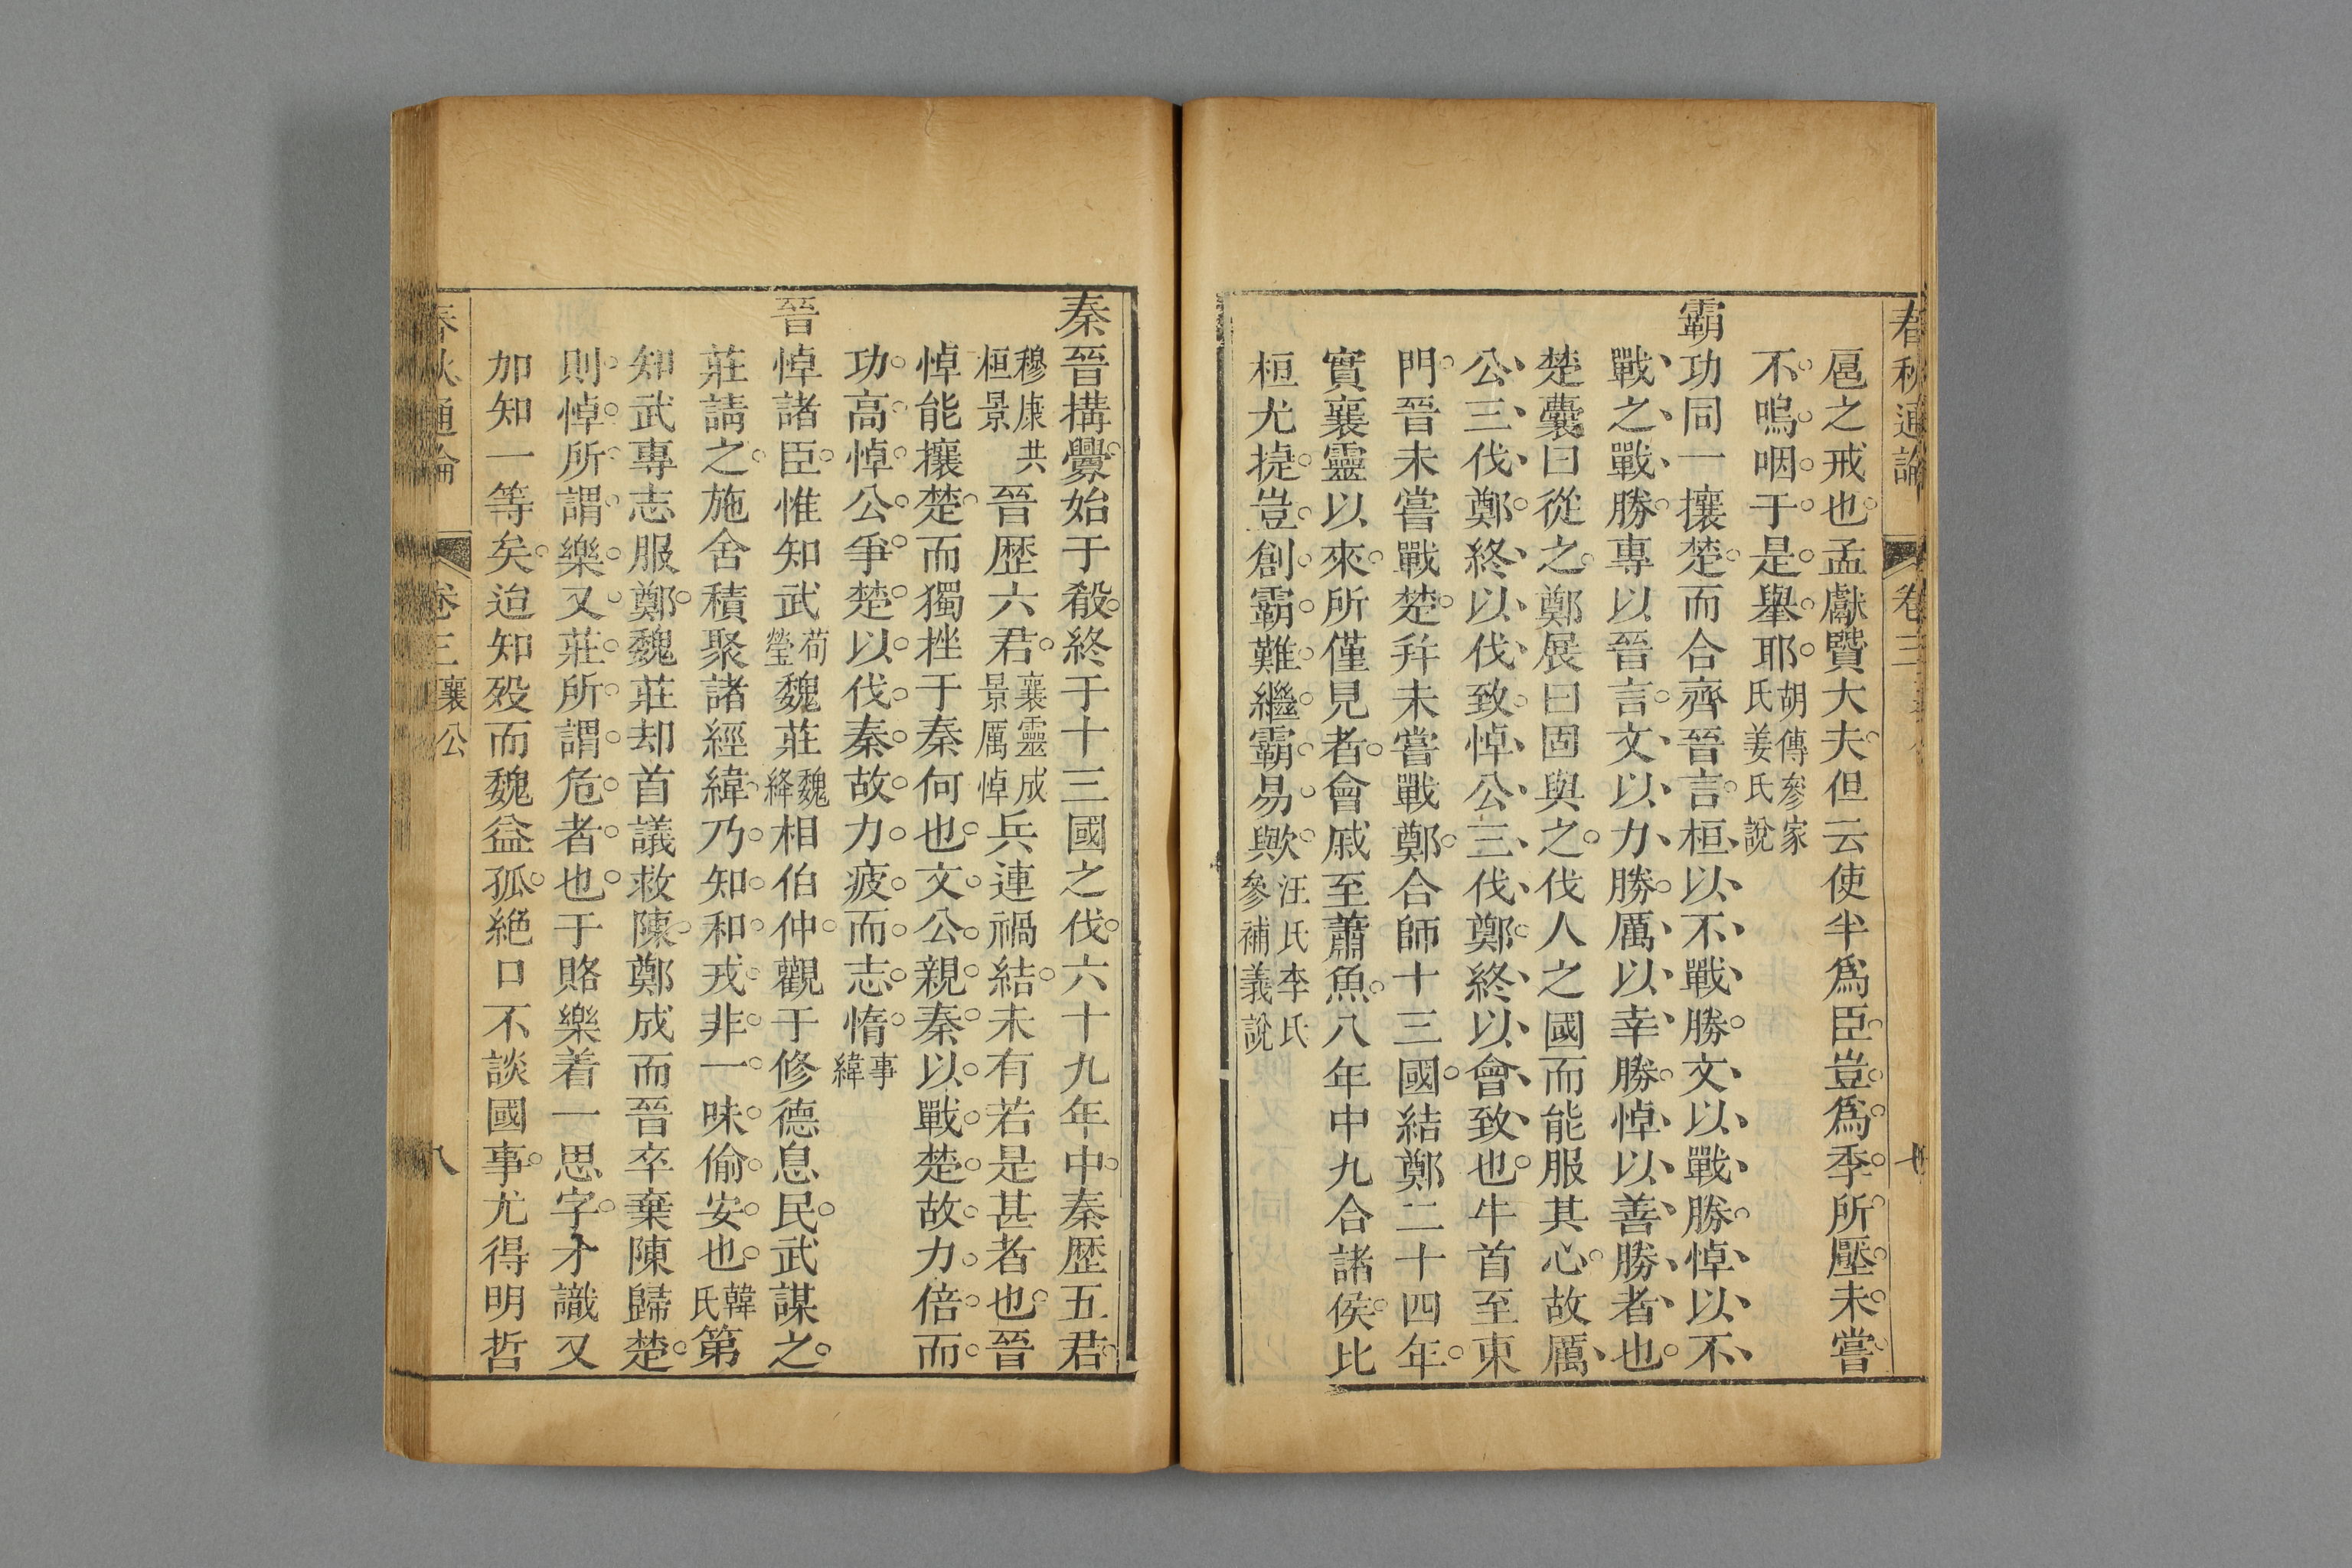 春秋通論 卷三
扈之戒也孟獻賢大夫但云使半爲臣豈爲季所壓未嘗
不嗚咽于是舉耶胡傳參家氏姜氏說
霸功同一攘楚而合齊晉言桓以不戰勝文以戰勝悼以不
戰之戰勝專以晉言文以力勝厲以幸勝悼以善勝者也
楚囊曰從之鄭展曰固與之伐人之國而能服其心故厲
公三伐鄭終以伐致悼公三伐鄭終以會致也牛首至東
門晉未嘗戰楚并未嘗戰鄭合師十三國結鄭二十四年
實襄靈以來所僅見者會戚至蕭魚八年中九合諸侯比
桓尤捷豈創霸難繼霸易歟汪氏李氏參補義說
秦晉搆釁始于殽終于十三國之伐六十九年中秦歷五君
穆康共桓景晉歷六君襄靈成景厲悼兵連禍結未有若是甚者也晉
悼能攘楚而獨挫于秦何也文公親秦以戰楚故力倍而
功高悼公爭楚以伐秦故力疲而志惰事緯
晉悼諸臣惟知武荀瑩魏莊魏絳相伯仲觀于修德息民武謀之
莊請之施舍積聚諸經緯乃知和戎非一味偷安也韓氏第
知武專志服鄭魏莊却首議救陳鄭成而晉卒棄陳歸楚
則悼所謂樂又莊所謂危者也于賂樂着一思字才識又
加知一等矣迨知歿而魏益孤絕口不談國事尤得明哲
春秋通論 卷三 襄公 八